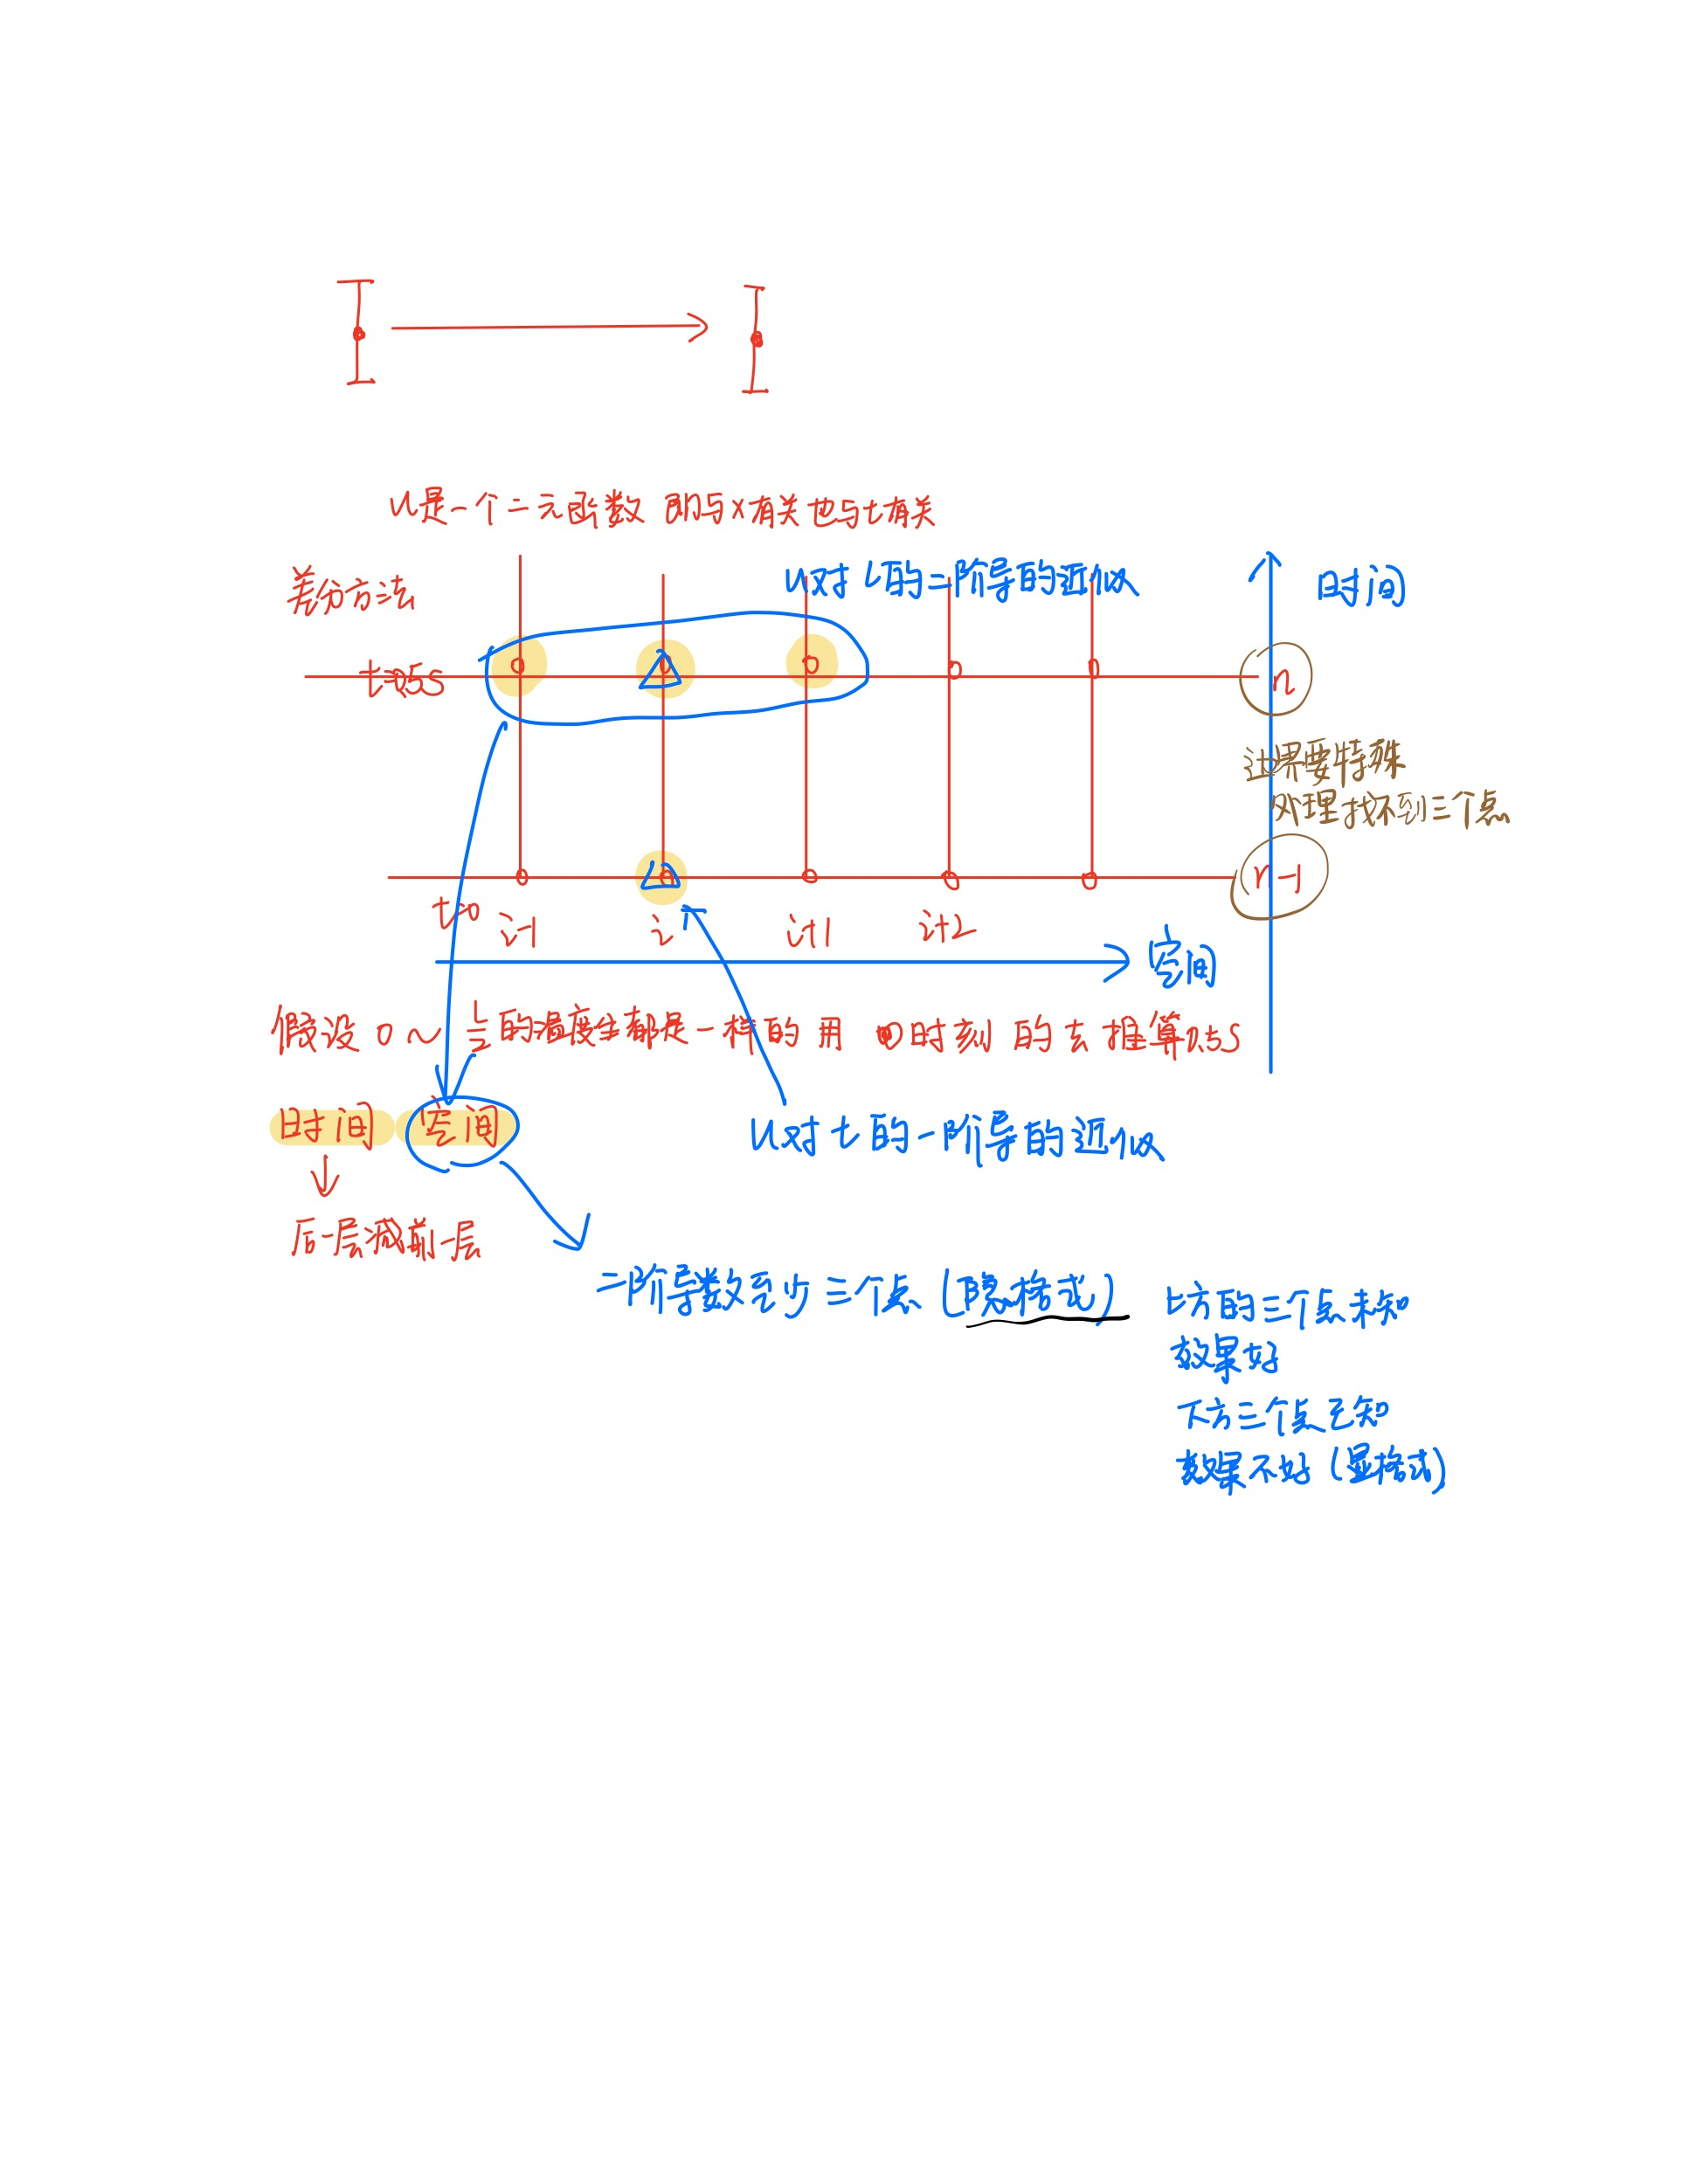 U是一个二元函数 即与x有关也与t有关
差分方法
U对L的二阶导的近似
时间
t=0.5s
n
边界要特殊
处理找不到三个点
n-1
t=0
i-1
i
i+1
i+2
空间
假设0~ 的温度全都是一样的用0时刻的去推算0.5s
时间 空间
U对t的一阶导的近似
后一层减前一层
二阶导数至少三个点(隐格式)
上方的三个点未知
效果好
下方三个点已知
效果不好(显格式)